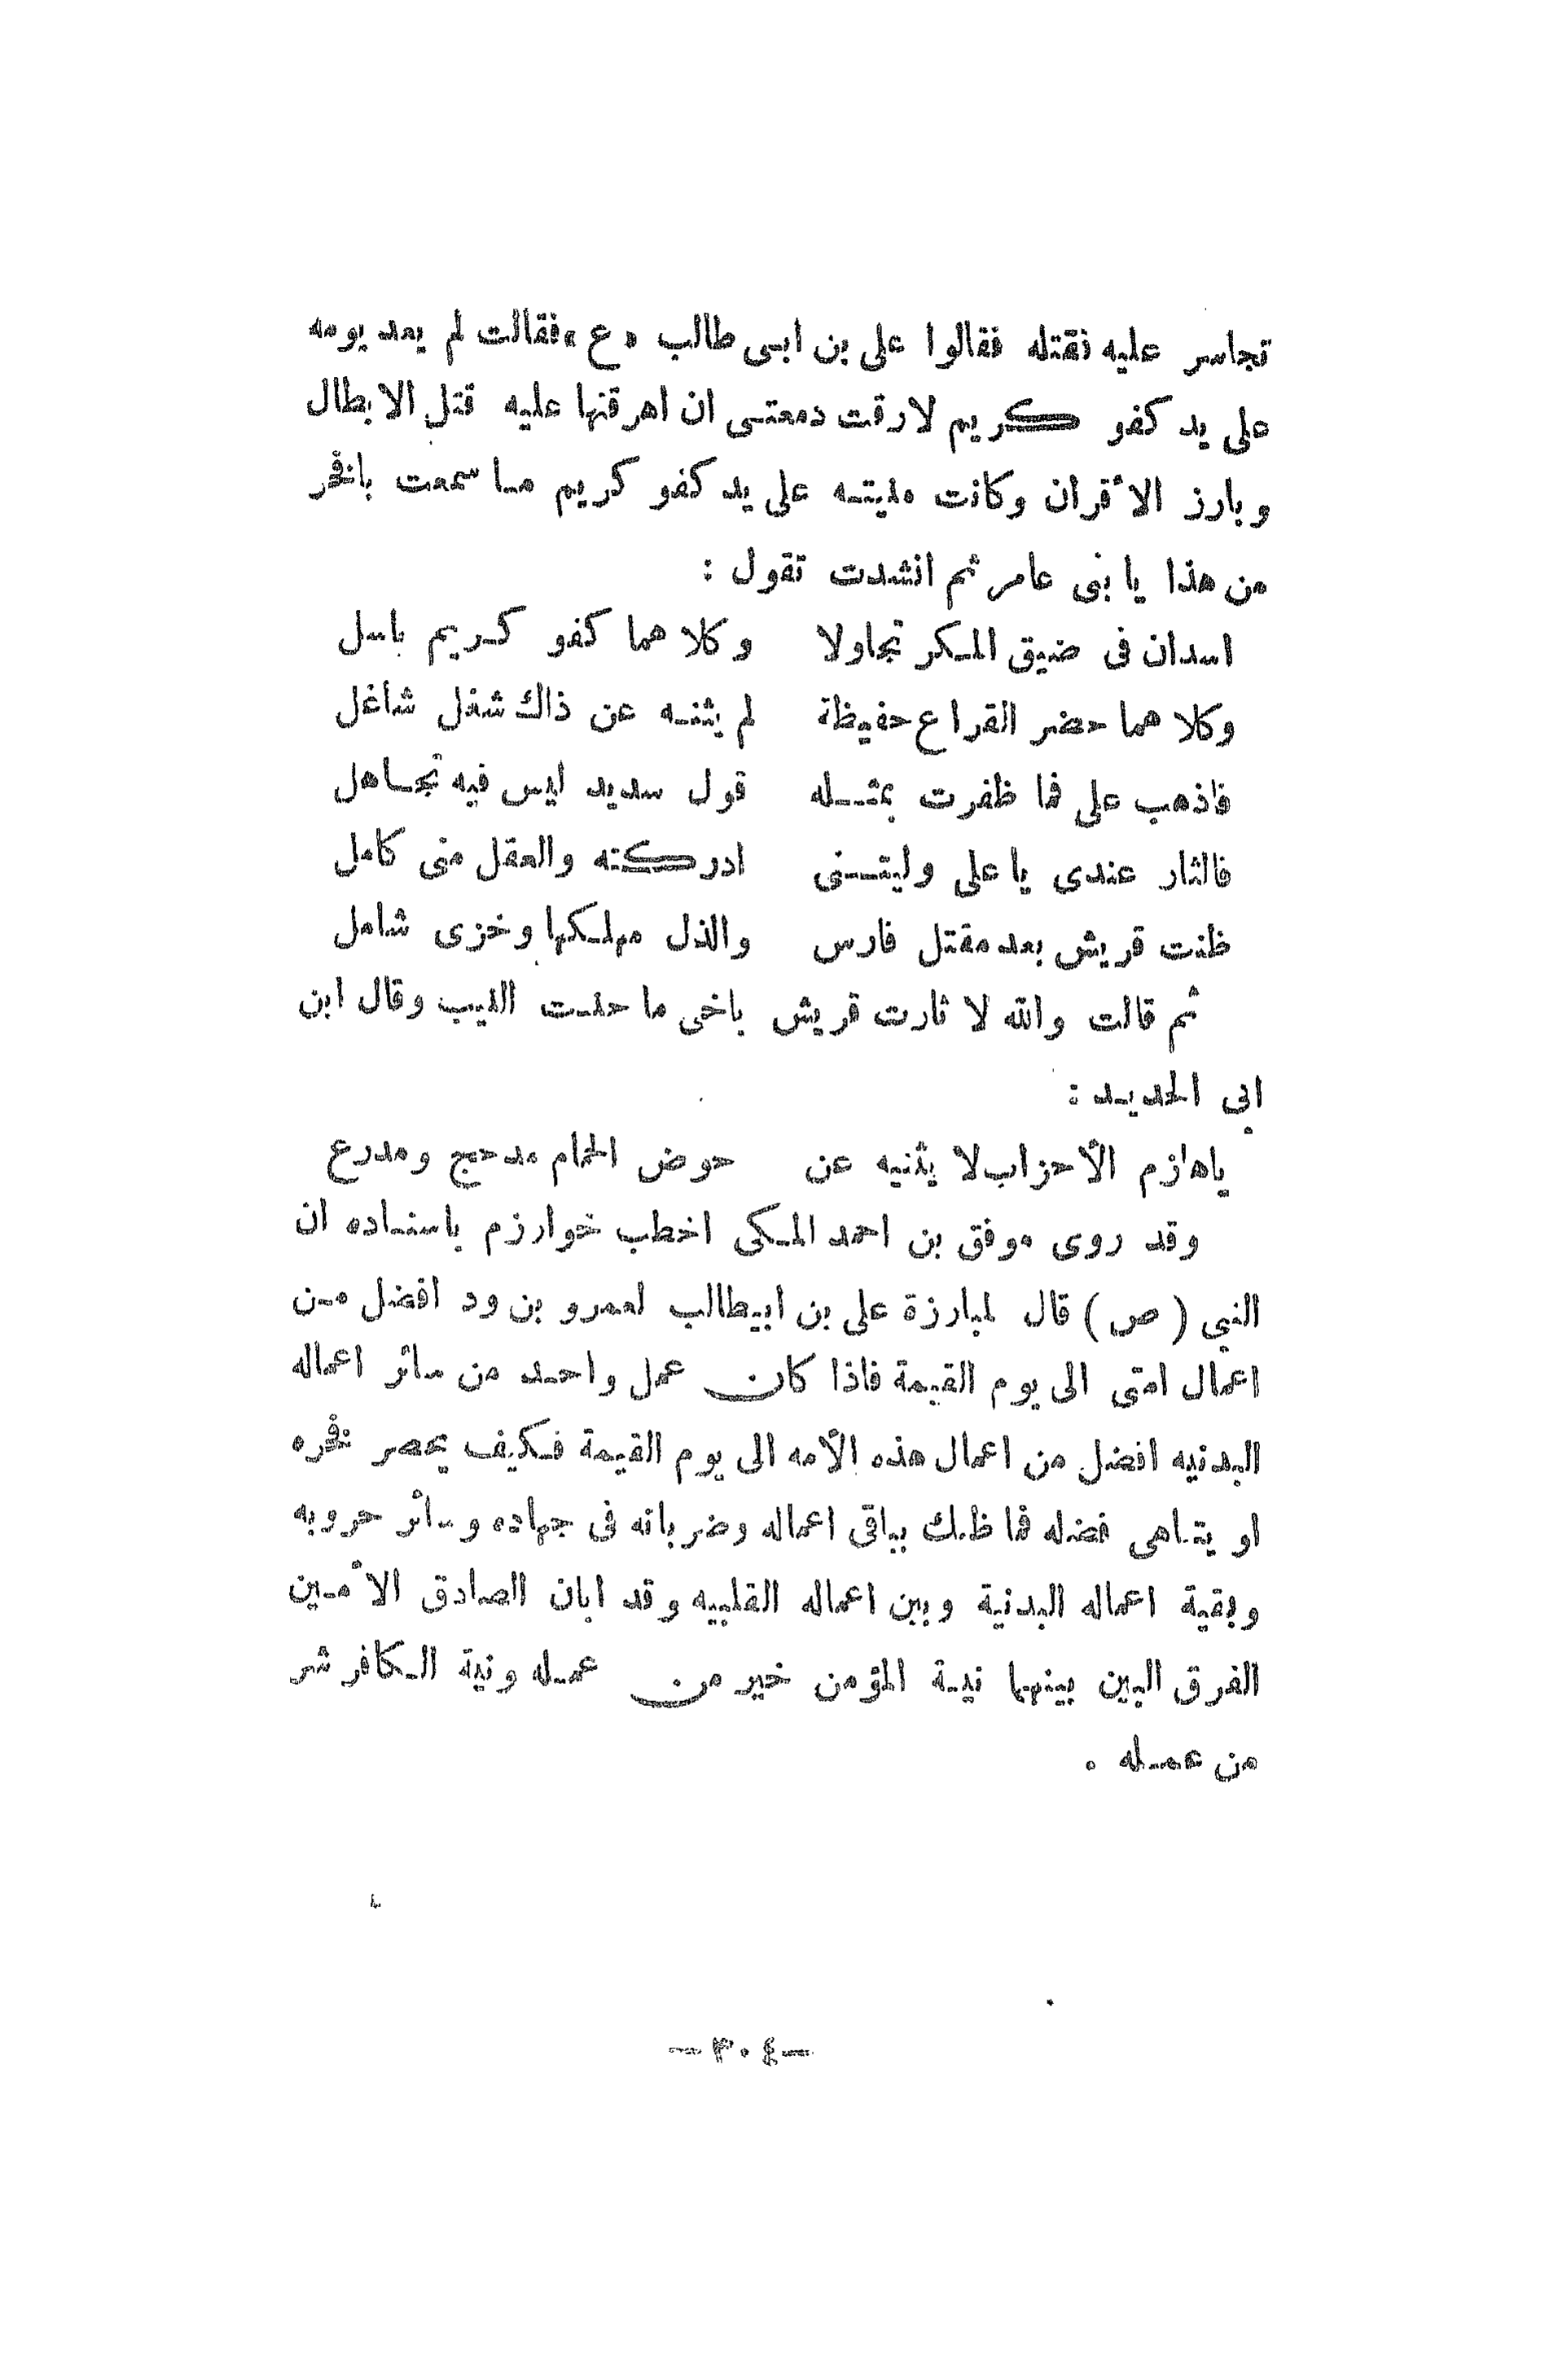 تجاسر عليه نقتله فقالوا على بن ابى طالب «ع» فقالت لم يعد يومه
على يد كفو كريم لارقت دمعتى ان اهرقتها عليه قتل الابطال
وبارز الأقران وكانت منيته على يد كفو كريم ما سمعت بافخر
من هذا يا بنى عامر ثم انشدت تقول :
اسدان فى ضيق المكر تجاولا وكلاهما كفو كريم باسل
وكلاهما حضر القراع حفيظة لم يثنه عن ذاك شغل شاغل
فاذهب على فما ظفرت بمثله قول سديد ليس فيه تجاهل
فالثار عندى يا على وليتنى ادركته والعقل منى كامل
ظنت قريش بعد مقتل فارس والذل مهلكها وخزى شامل
ثم قالت والله لا ثارت قريش باخى ما حنت النيب وقال ابن
ابى الحديد :
ياهازم الأحزاب لا يثنيه عن حوض الحمام مدحج ومدرع
وقد روى موفق بن احمد المكى اخطب خوارزم باسناده ان
النبي ( ص ) قال لمبارزة على بن ابيطالب لعمرو بن ود افضل من
اعمال امتى الى يوم القيمة فاذا كان عمل واحد من سائر اعماله
البدنيه افضل من اعمال هذه الأمه الى يوم القيمة فكيف يحصر فخره
او يتناهى فضله فما ظنك بباقى اعماله وضرباته فى جهاده وسائر حروبه
وبقية اعماله البدنية وبين اعماله القلبيه وقد ابان الصادق الأمين
الفرق البين بينهما نية المؤمن خير من عمله ونية الكافر شر
من عمله .
—٣٠٤—